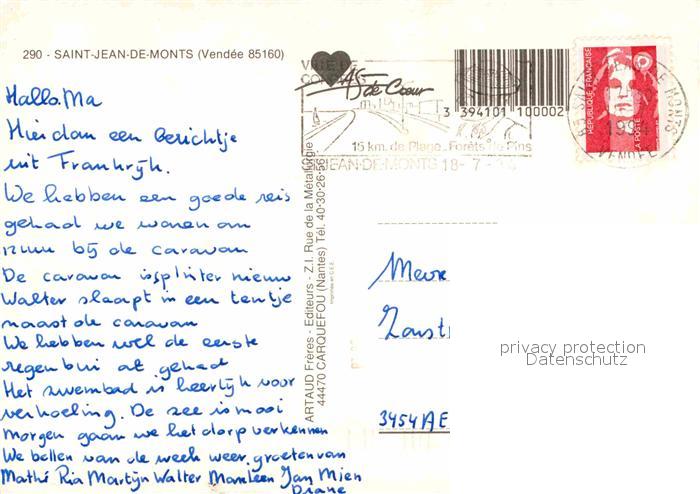 290 - SAINT-JEAN-DE-MONTS (Vendée 85160)
Hallo Ma
Hier dan een berichtje
uit Frankrijk.
We hebben een goede reis
gehad we waren om
12 uur bij de caravan
De caravan is splinter nieuw
Walter slaapt in een tentje
naast de caravan
We hebben wel de eerste
regenbui al gehad
Het zwembad is heerlijk voor
verkoeling. De zee is mooi
Morgen gaan we het dorp verkennen
We bellen van de week weer, groeten van
Mathé Ria Martijn Walter Marleen Jan Mien
ARTAUD Frères - Editeurs - Z.I. Rue de la Métallurgie
44470 CARQUEFOU (Nantes) Tél. 40-30-26-56
VILLE DE
AS de Cœur
15 km. de Plage - Forêts de Pins
JEAN-DE-MONTS 18-7-
3 394101 100002
REPUBLIQUE FRANÇAISE
LA POSTE
DE MONTS
VENDEE
Mevr
Zonst
3454 AE
privacy protection
Datenschutz